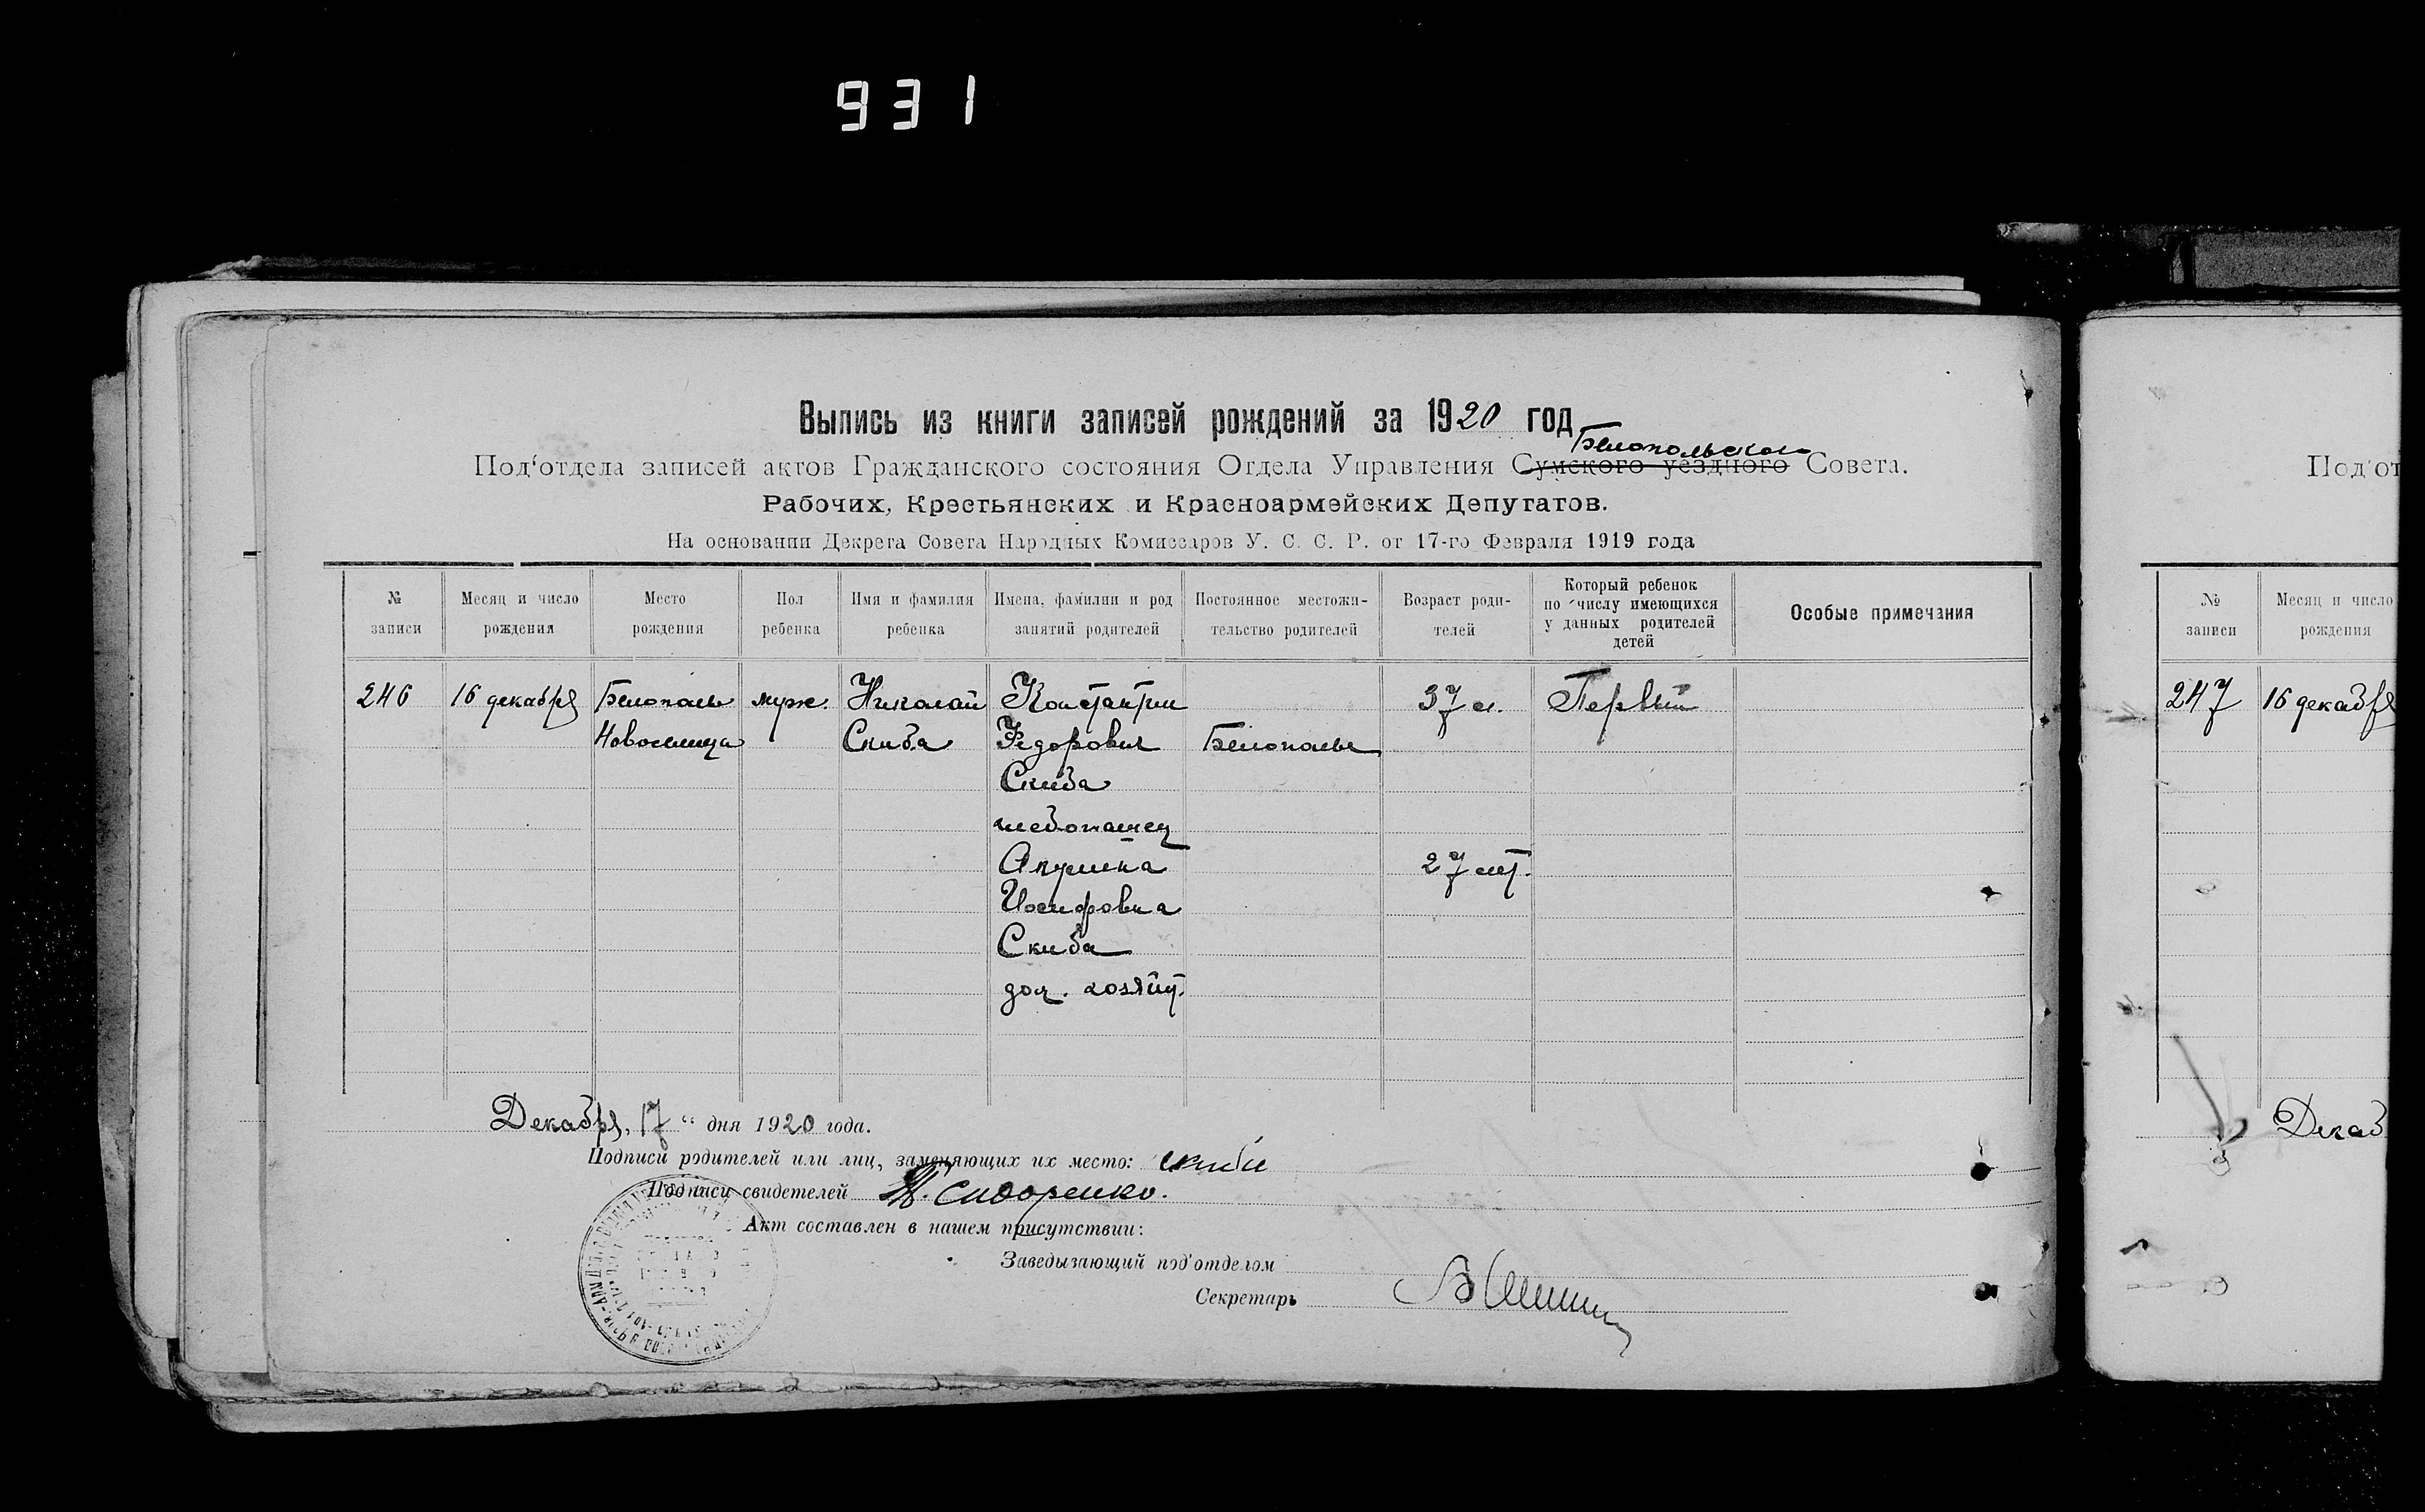 931
Выпись из книги записей рождений за 1920 год
Белопольского
Под'отдела записей актов Гражданского состояния Отдела Управления Сумского уездного Совета.
Рабочих, Крестьянских и Красноармейских Депутатов.
На основании Декрета Совета Народных Комиссаров У. С. С. Р. от 17-го Февраля 1919 года
№ записи
Месяц и число рождения
Место рождения
Пол ребенка
Имя и фамилия ребенка
Имена, фамилии и род занятий родителей
Постоянное местожительство родителей
Возраст родителей
Который ребенок по числу имеющихся у данных родителей детей
Особые примечания
246 16 декабря Белополье муж. Николай Константин 37 л. Первый
Новоселица Скиба Федорович Белополье
Скиба
хлебопашец
Акулина 27 лет.
Иосифовна
Скиба
дом. хозяйст.
Декабря, 17 " дня 1920 года.
Подписи родителей или лиц, заменяющих их место: Скиба
Подписи свидетелей Сидоренко.
Акт составлен в нашем присутствии:
Заведызающий под'отделом
Секретарь
Под'от
№ записи
Месяц и число рождения
247 16 декабря
Декаб